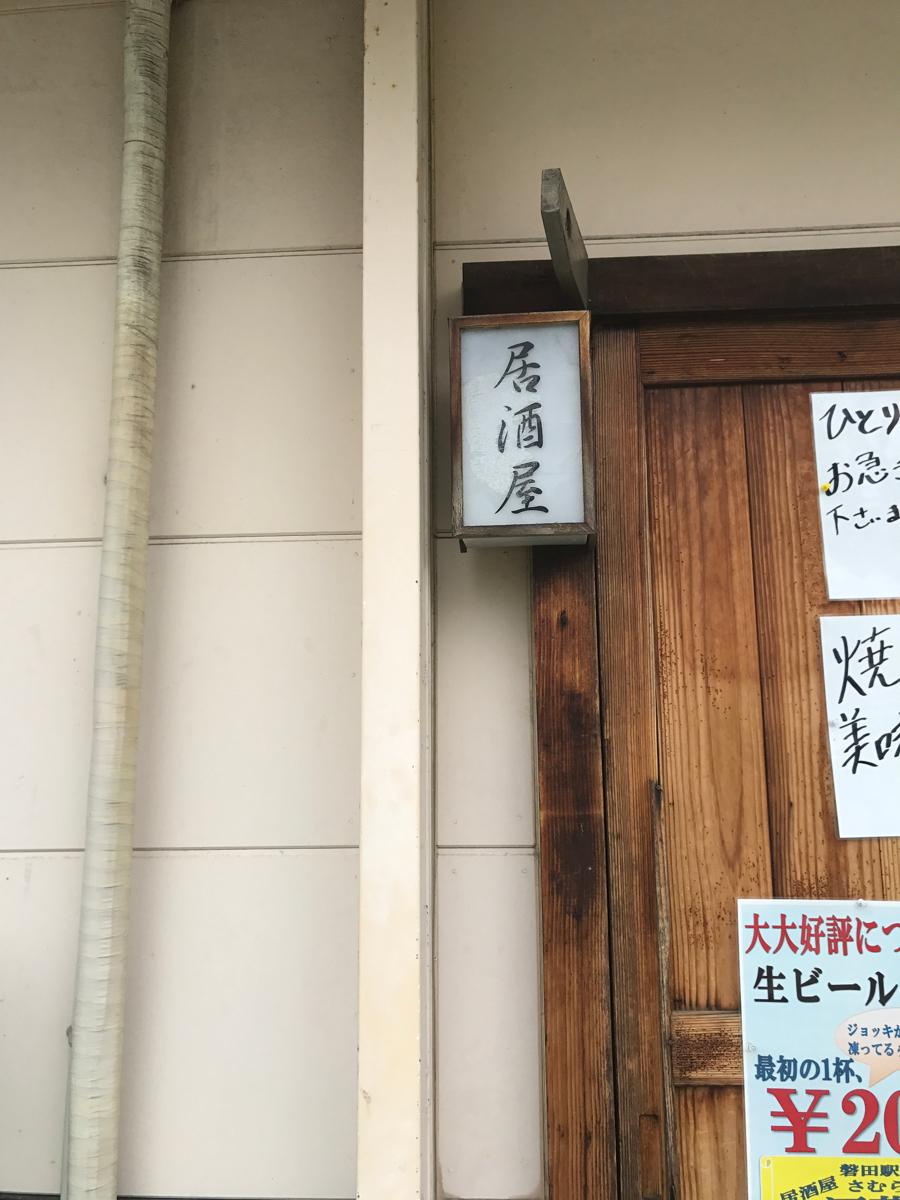 居酒屋
ひとり
お急ぎ
下さいま
焼
美味
大大好評につ
生ビール
ジョッキが
凍ってる
最初の1杯、
¥20
磐田駅
居酒屋 さむら